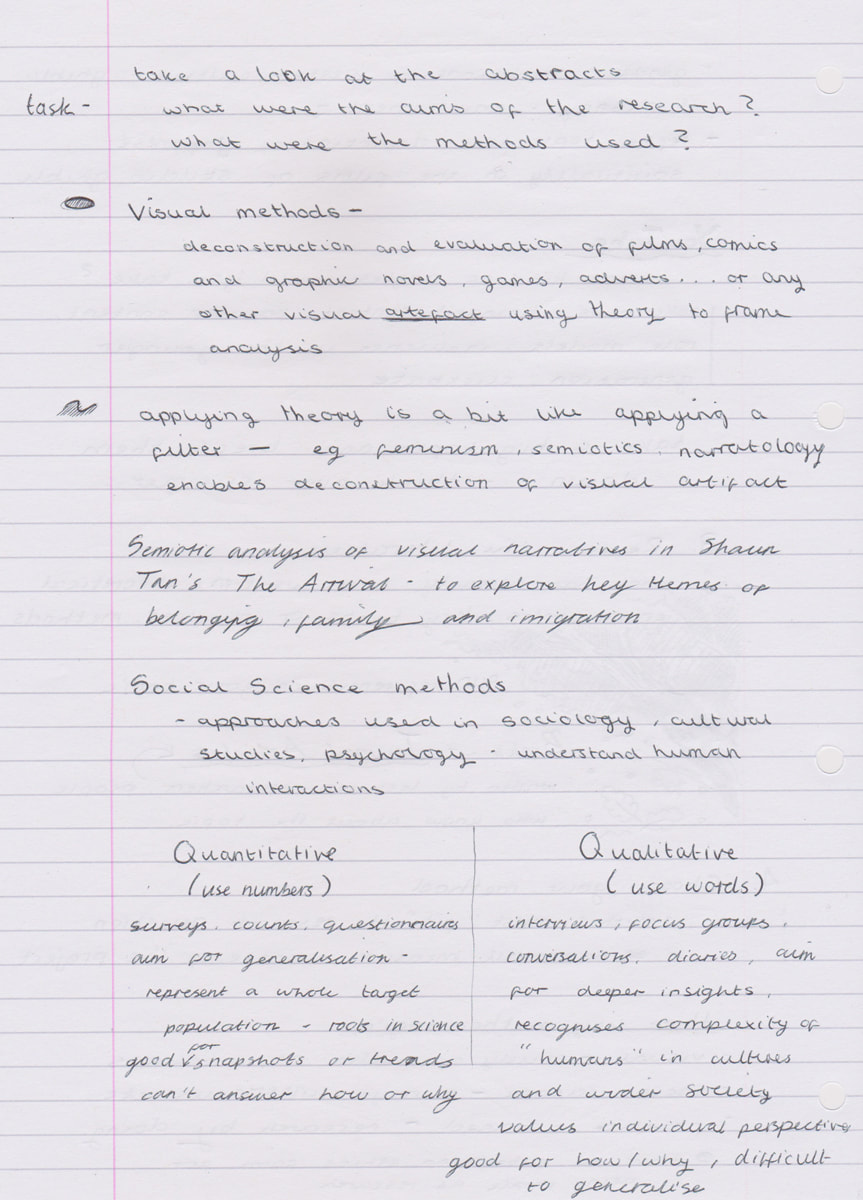 take a look at the abstracts
task - what were the aims of the research?
what were the methods used?
Visual methods -
deconstruction and evaluation of films, comics
and graphic novels, games, adverts... or any
other visual artefact using theory to frame
analysis
applying theory is a bit like applying a
filter - eg feminism, semiotics, narratology
enables deconstruction of visual artifact
Semiotic analysis of visual narratives in Shaun
Tan's The Arrival - to explore key themes of
belonging, family and imigration
Social Science methods
- approaches used in sociology, cultural
studies, psychology - understand human
interactions
Quantitative
(use numbers)
surveys, counts, questionnaires
aim for generalisation -
represent a whole target
population - roots in science
good for snapshots or trends
can't answer how or why
Qualitative
(use words)
interviews, focus groups,
conversations, diaries, aim
for deeper insights,
recognises complexity of
"humans" in cultures
and wider society
values individual perspective
good for how/why, difficult
to generalise